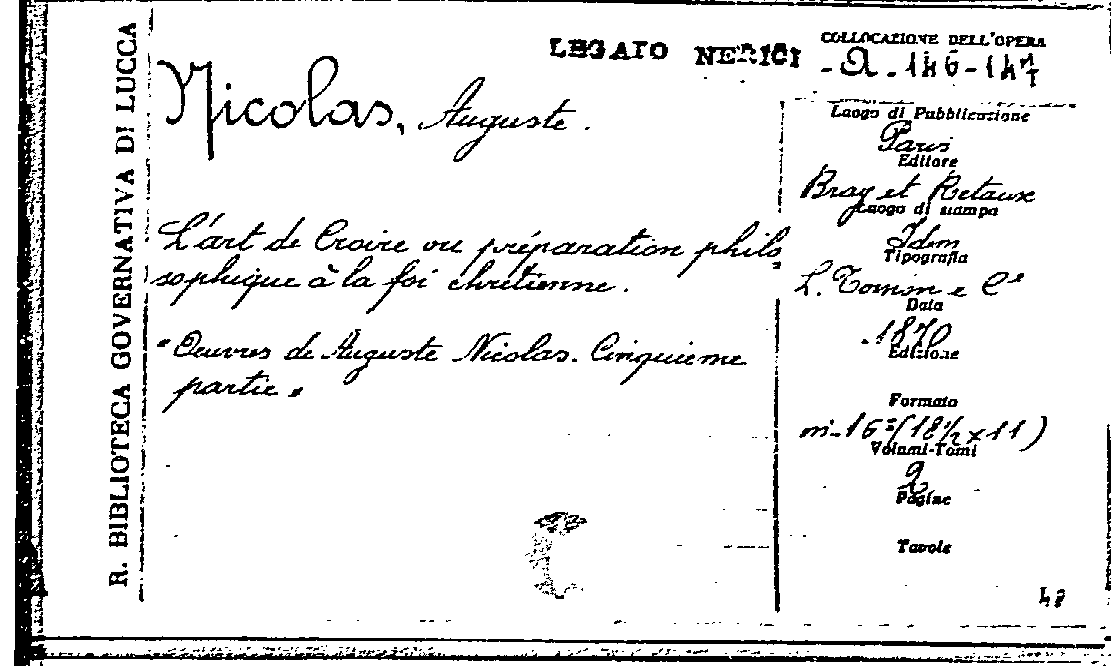 R. BIBLIOTECA GOVERNATIVA DI LUCCA
LEGATO NERICI
COLLOCAZIONE DELL'OPERA
Nicolas, Auguste.
L'art de Croire ou préparation philo
sophique à la foi chrétienne.
"Oeuvres de Auguste Nicolas. Cinquième
partie"
Luogo di Pubblicazione
Paris
Editore
Bray et Retaux
Luogo di stampa
Idem
Tipografia
Data
1870
Edizione
Formato
in-16°(18½ x 11)
Volumi-Tomi
2
Pagine
Tavole